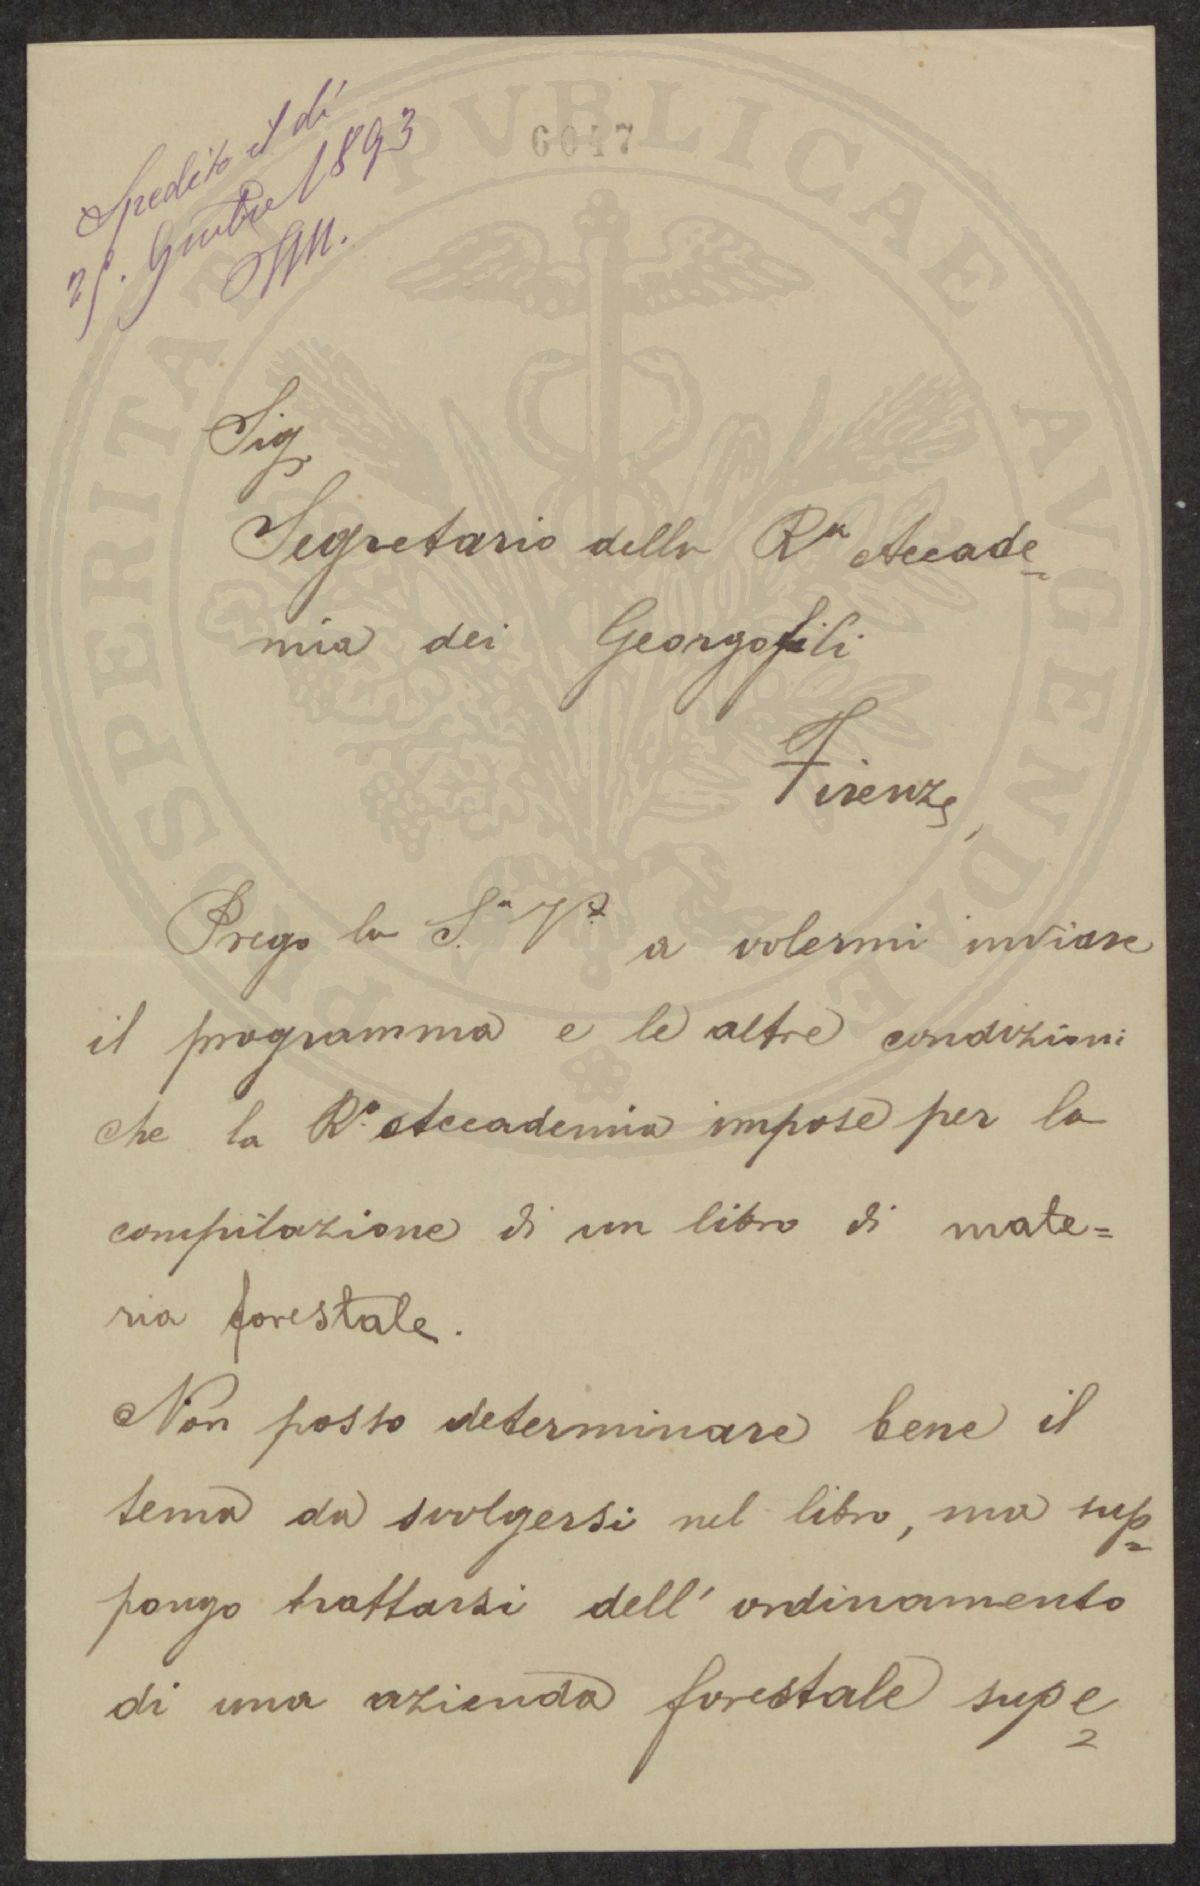 Spedito il dì
25. 1893
6047
PROSPERITATI PVBLICAE AVGENDAE
Sig.
Segretario della Rª Accade=
mia dei Georgofili
Firenze
Prego la S.ª Vª a volermi inviare
il programma e le altre condizioni
che la Rª Accademia impose per la
compilazione di un libro di mate=
ria forestale.
Non posso determinare bene il
tema da svolgersi nel libro, ma sup=
pongo trattarsi dell' ordinamento
di una azienda forestale supe=